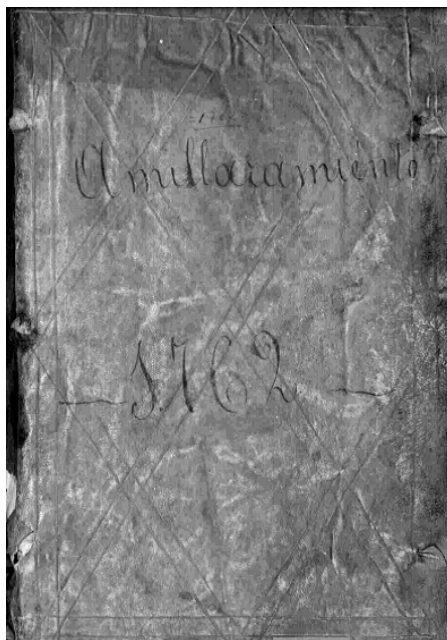 Amillaramiento
— 1762 —